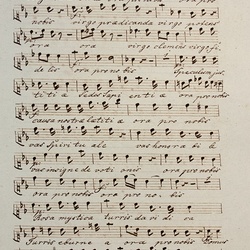 ora pro
nobis virgo prædicanda virgo potens
ora ora virgo clemens virgo fi
de lis ora pro nobis Speculum jus
ti ti æ sedes sapi enti æ ora pro nobis
causa nostræ lætiti æ ora pro nobis
vas Spiritu ale vas honora bi le
vas insigne de voti onis ora pro nobis
ora pro nobis
Rosa mystica turris da vi di ca
Turris eburne a ora pro nobis Domus